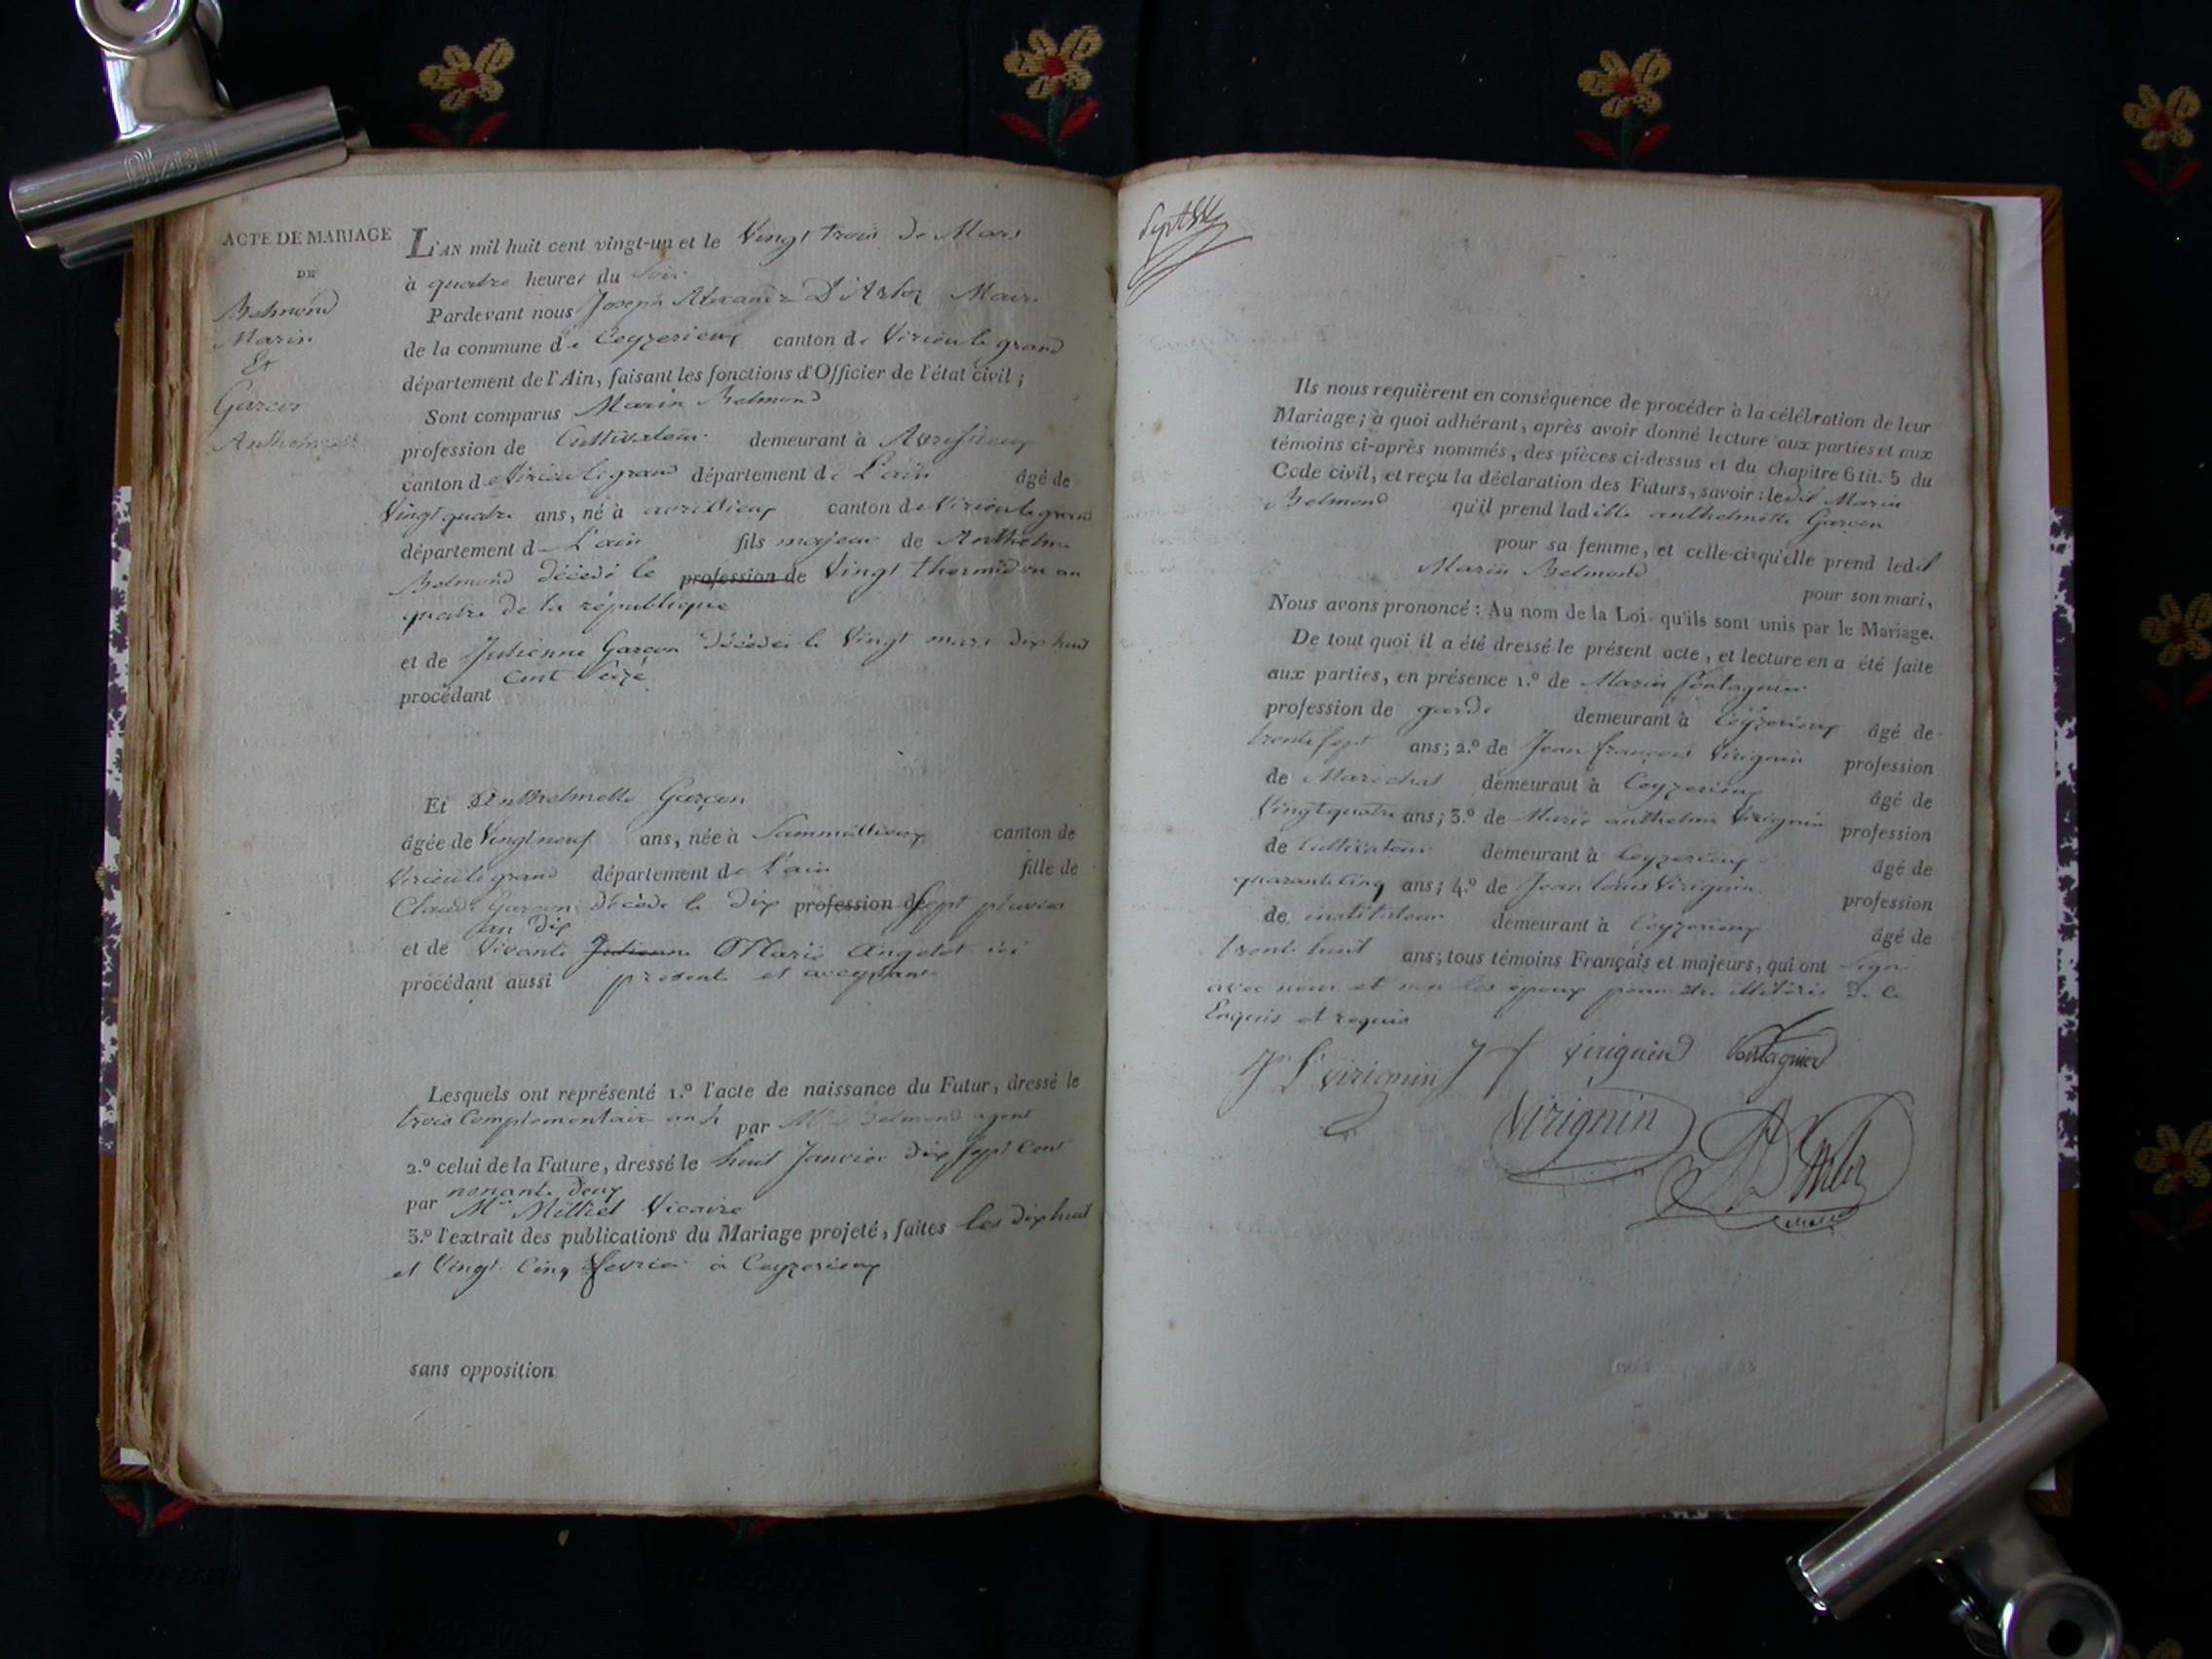 ACTE DE MARIAGE
DE
Belmond
Marin
Et
Garcon
Anthelmette
L'AN mil huit cent vingt-un et le Vingt trois de Mars
à quatre heures du Soir
Pardevant nous Joseph D'Arloz Maire
de la commune de Ceyzerieux canton de Virieu le grand
département de l'Ain, faisant les fonctions d'Officier de l'état civil ;
Sont comparus Marin Belmond
profession de Cultivateur demeurant à Avrissieux
canton de Virieu le grand département de L'ain âgé de
Vingt quatre ans, né à avrissieux canton de Virieu le grand
département d L'ain fils majeur de Anthelme
Belmond décédé le profession de Vingt thermidor an
quatre de la république
et de Julienne Garcon décédée le Vingt mars dix huit
cent Seize
procédant
Et Anthelmette Garçon
âgée de Vingt neuf ans, née à canton de
Virieu le grand département de L'ain fille de
Claude Garcon décédé le dix profession de sept pluviose
an dix
et de Vivante Julienne Marie Angelot ici
procédant aussi présente et acceptante
Lesquels ont représenté 1.º l'acte de naissance du Futur, dressé le
trois Complementaire an 4 par Mr Belmond agent
2.º celui de la Future, dressé le huit Janvier dix sept cent
nonante deux
par Mr Vicaire
3.º l'extrait des publications du Mariage projeté, faites les dix huit
et Vingt Cinq fevrier à Ceyzerieux
sans opposition
Ils nous requièrent en conséquence de procéder à la célébration de leur
Mariage ; à quoi adhérant, après avoir donné lecture aux parties et aux
témoins ci-après nommés, des pièces ci-dessus et du chapitre 6 tit. 5 du
Code civil, et reçu la déclaration des Futurs, savoir : ledit Marin
Belmond qu'il prend ladite anthelmette Garcon
pour sa femme, et celle-ci qu'elle prend ledit
Marin Belmond
pour son mari,
Nous avons prononcé : Au nom de la Loi qu'ils sont unis par le Mariage.
De tout quoi il a été dressé le présent acte, et lecture en a été faite
aux parties, en présence 1.º de Marin Fontagnier
profession de garde demeurant à Ceyzerieux âgé de
trente sept ans ; 2.º de Jean françois Virignin profession
de Maréchal demeurant à Ceyzerieux âgé de
Vingt quatre ans ; 3.º de Marie anthelme Virignin profession
de Cultivateur demeurant à Ceyzerieux âgé de
quarante cinq ans ; 4.º de Jean Louis Virignin profession
de instituteur demeurant à Ceyzerieux âgé de
trente huit ans ; tous témoins Français et majeurs, qui ont signé
avec nous et non les époux pour être illitérés de ce
Enquis et requis
Jn Ls virignin J f virignin fontagnier
Virignin